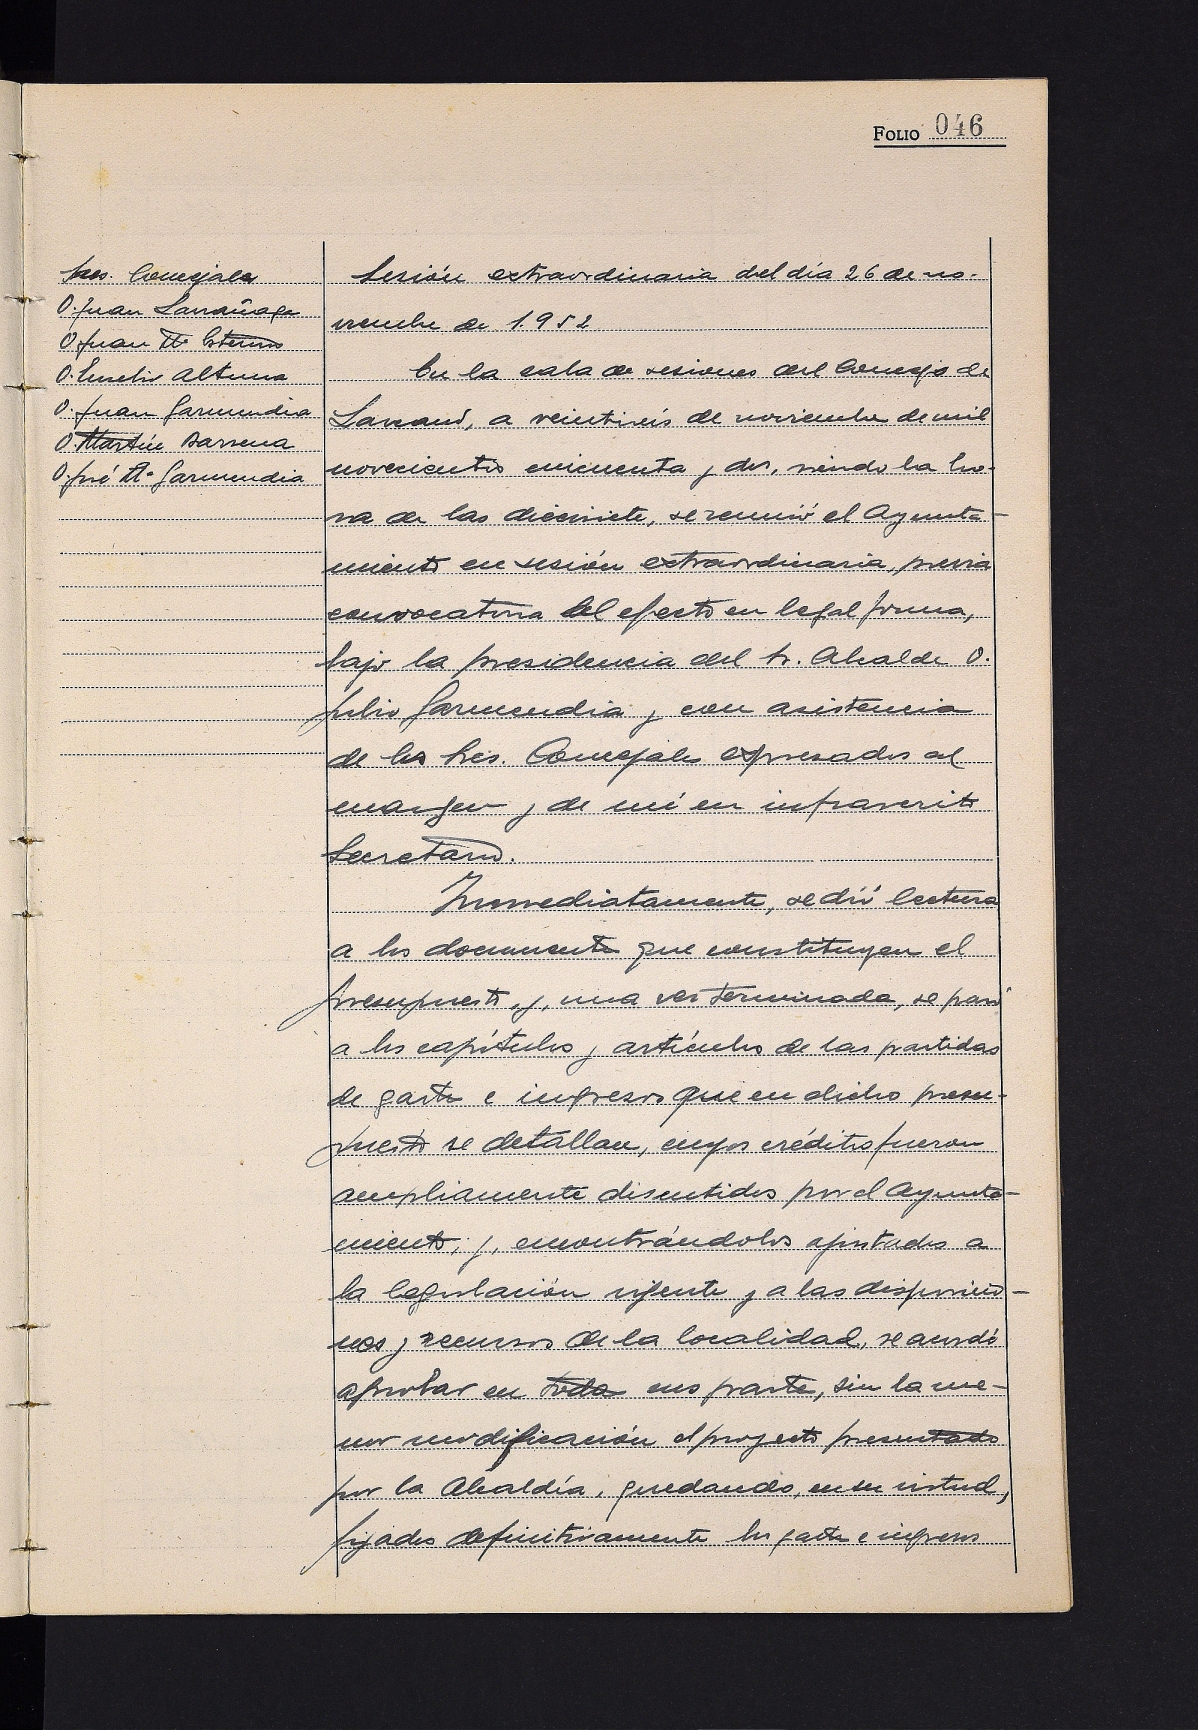 FOLIO 046
Sres. Concejales
D. Juan Larrañaga
D. Juan Mª
D. Eusebio Altuna
D. Juan Garmendia
D. Martín Barrena
D. José Mª Garmendia
Sesión extraordinaria del día 26 de no-
viembre de 1.952
En la sala de sesiones del Concejo de
Larraul, a veintiseis de noviembre de mil
novecientos cincuenta y dos, siendo la ho-
ra de las diecisiete, se reunió el Ayunta-
miento en sesión extraordinaria, previa
convocatoria al efecto en legal forma,
bajo la presidencia del Sr. Alcalde D.
Julio Garmendia y con asistencia
de los Sres. Concejales expresados al
margen y de mí en infrascrito
Secretario.
Inmediatamente, se dió lectura
a los documentos que constituyen el
presupuesto, y, una vez terminada, se pasó
a los capítulos y artículos de las partidas
de gastos e ingresos que en dicho presu-
puesto se detallan, cuyos créditos fueron
ampliamente discutidos por el Ayunta-
miento; y, encontrándolos ajustados a
la legislación vigente y a las disposicio-
nes y recursos de la localidad, se acordó
aprobar en todas sus partes, sin la me-
nor modificación el proyecto presentado
por la Alcaldía, quedando, en su virtud,
fijados definitivamente los gastos e ingresos